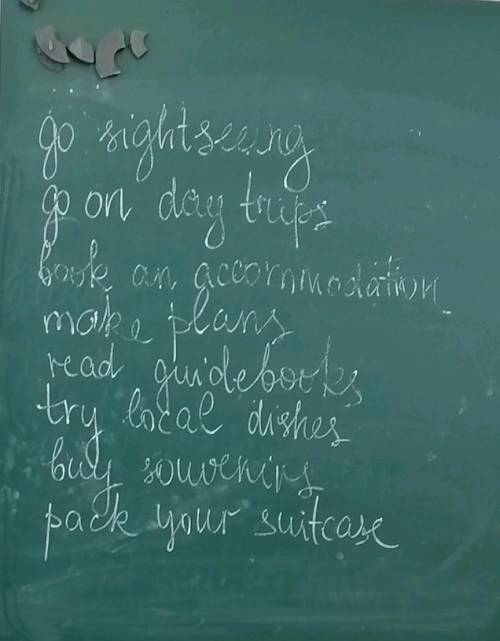 go sightseeing
go on day trips
book an accommodation
make plans
read guidebooks
try local dishes
buy souvenirs
pack your suitcase